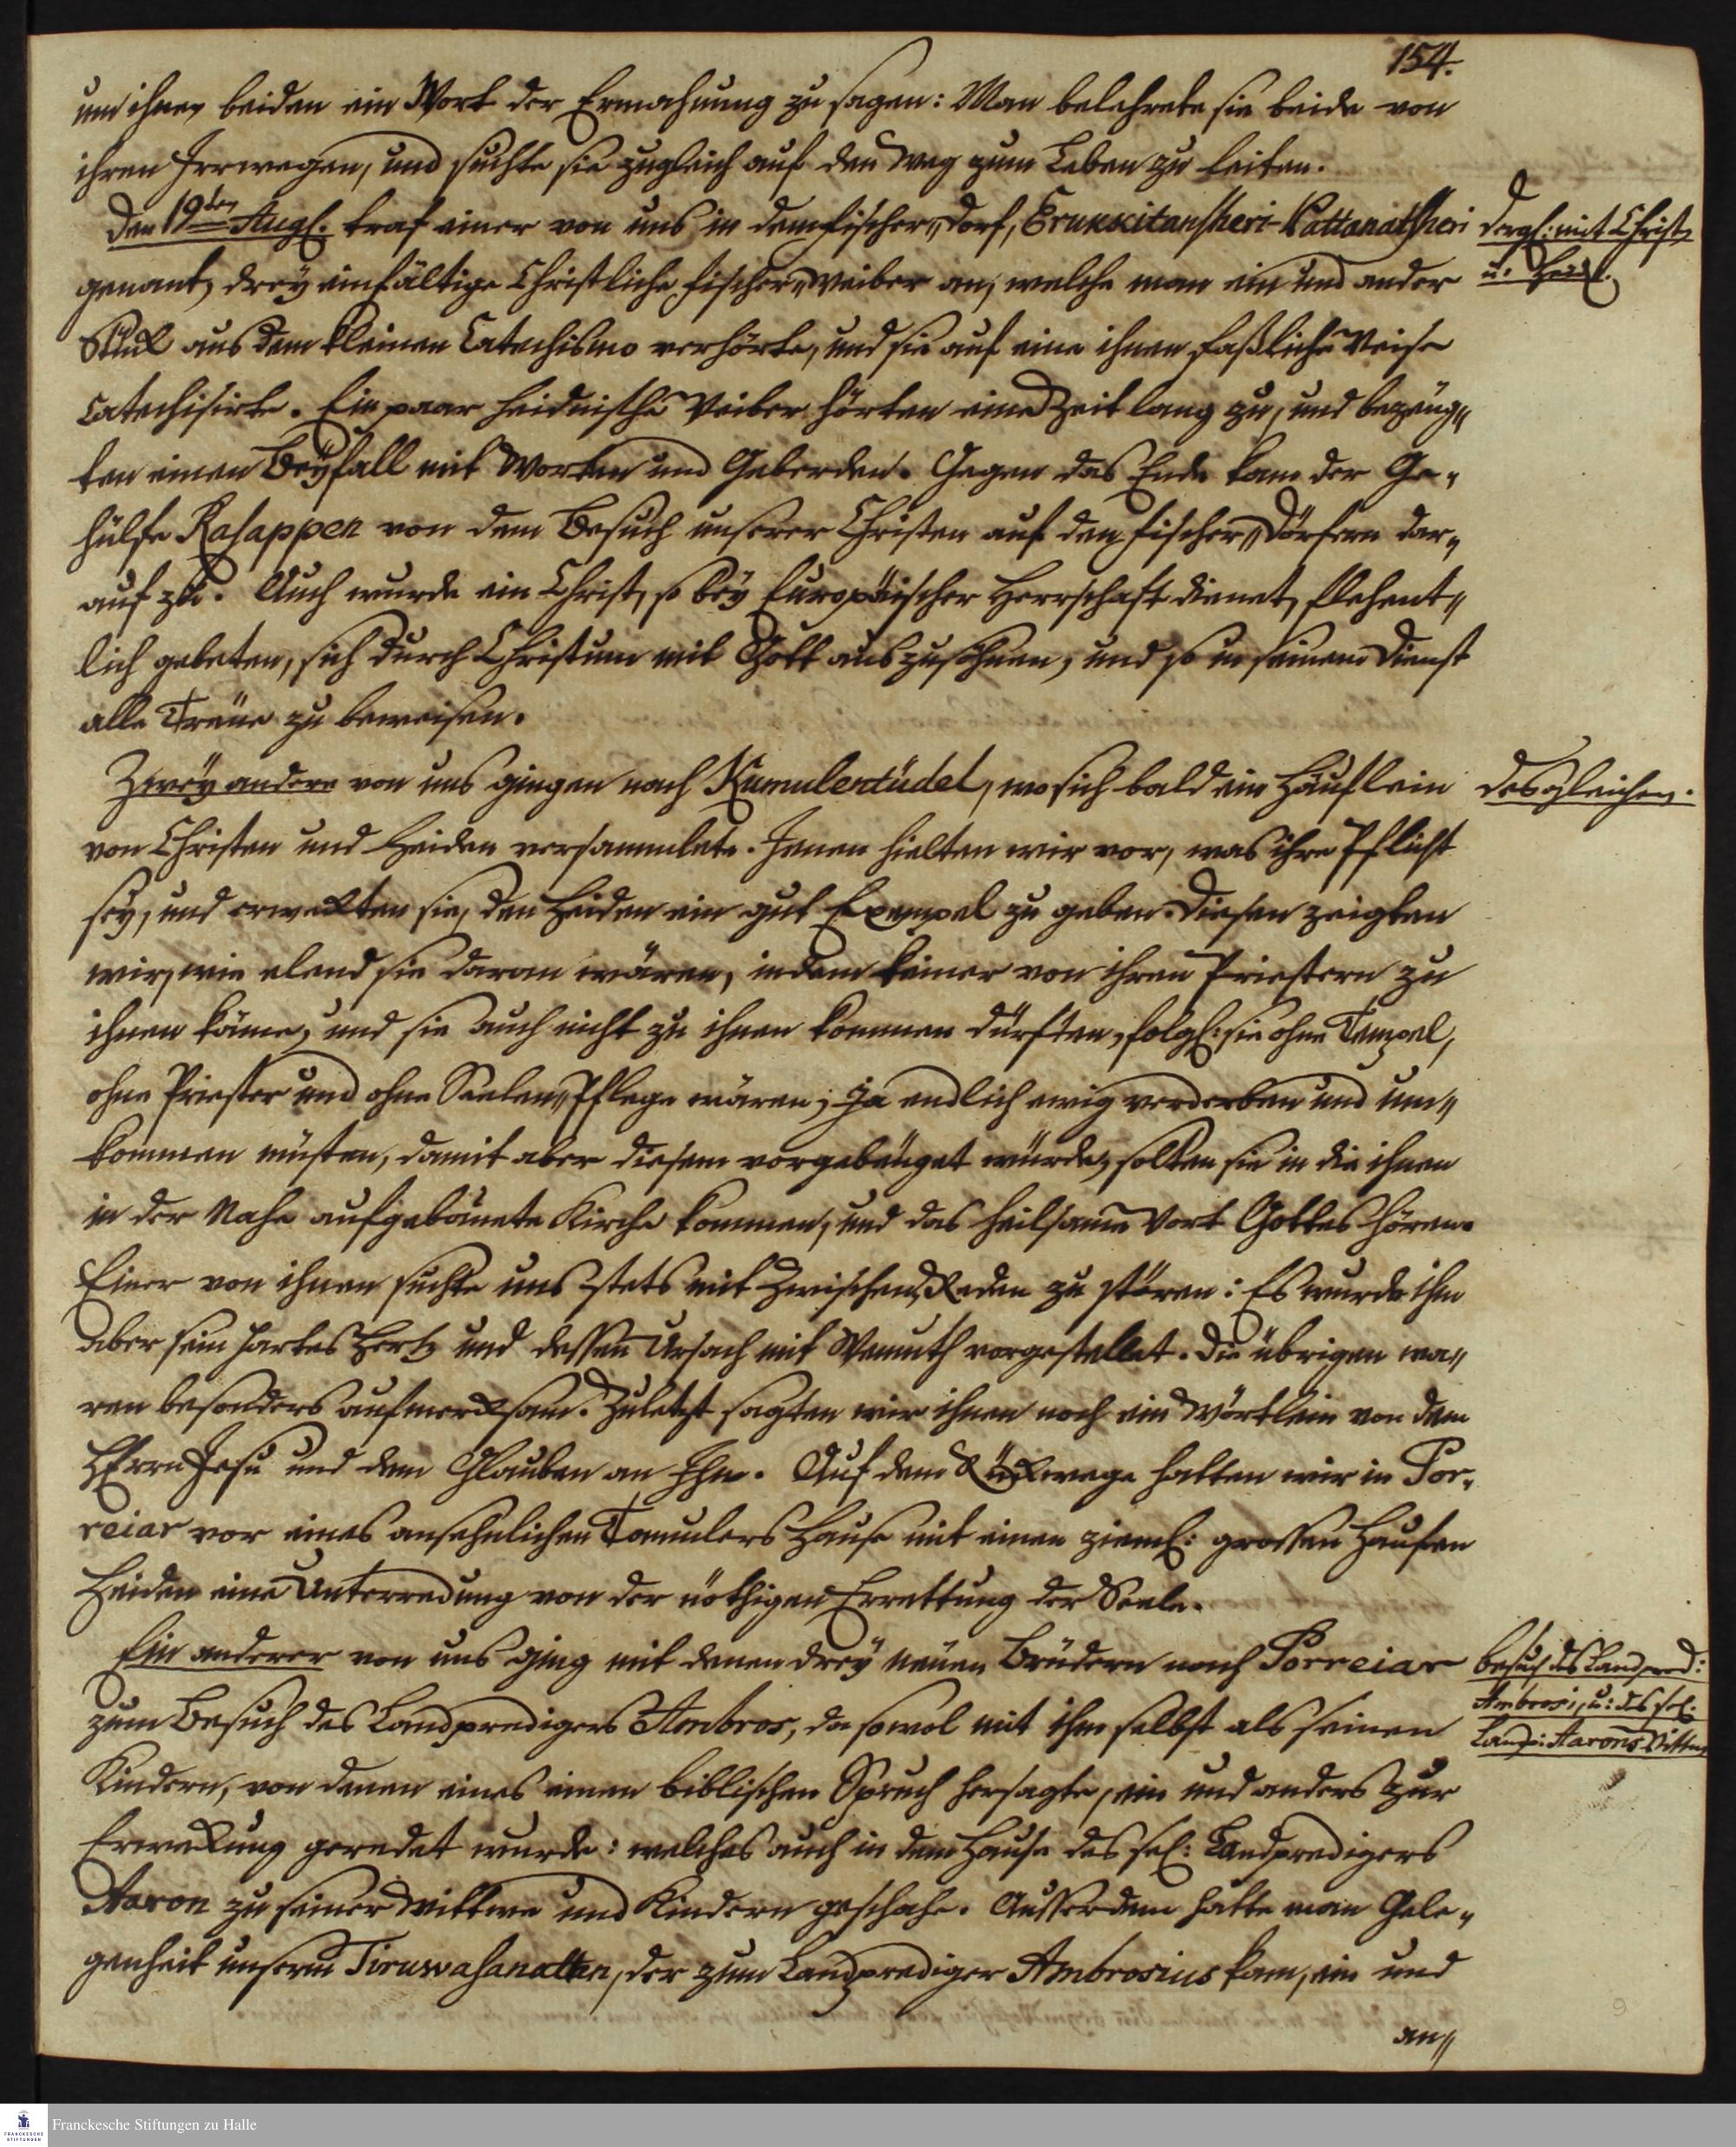 154.
um ihnen beiden ein Wort der Ermahnung zu sagen: Man belehrete sie beide von
ihren Irrwegen, und suchte sie zugleich auf den Weg zum Leben zu leiten.
Den 19ten Augl. traf einer von uns in dem Fischer„Dorf, Erukkitansheri-Pattanatsheri
genant, drey einfältige Christliche Fischer„Weiber an, welche man ein und ander
Stück aus dem kleinen Catechismo verhörte, und sie auf eine ihnen faßliche Weise
Catechisirte. Ein paar heidnische Weiber hörten eine Zeit lang zu, und bezeug„
ten einen Beyfall mit Worten und Geberden. Gegen das Ende kam der Ge„
hülfe Rasappen von dem Besuch unserer Christen auf den Fischer„Dörfern dar„
auf zu. Auch wurde ein Christ, so bey Europäischer Herrschaft dienet, flehent„
lich gebeten, sich durch Christum mit Gott auszusöhnen, und so in seinem Dienst
alle Treue zu beweisen.
Zwey andere von uns gingen nach Kumulentüdel, wo sich bald ein Häuflein
von Christen und Heiden versammlete. Jenen hielten wir vor, was ihre Pflicht
sey, und erweckten sie, den Heiden ein gut Exempel zu geben. Diesen zeigten
wir, wie elend sie daran wären, indem keiner von ihren Priestern zu
ihnen käme, und sie auch nicht zu ihnen kommen dürften, folgl: sie ohne Tempel,
ohne Priester und ohne Seelen„Pflege wären; ja endlich ewig verderben und um„
kommen müsten, damit aber diesem vorgebeuget würde, solten sie in die ihnen
in der Nahe aufgebauete Kirche kommen, und das heilsame Wort Gottes hören.
Einer von ihnen suchte uns stets mit Zwischen„Reden zu stören: Es wurde ihm
aber sein hartes Hertz und dessen Ursach mit Wemuth vorgestellet. Die übrigen wa„
ren besonders aufmercksam. Zuletzt sagten wir ihnen noch ein Wörtlein von dem
HErrn Jesu und dem Glauben an Ihn. Auf dem Rückwege hatten wir in Por„
reiar vor eines ansehnlichen Tamulers Hause mit einen zieml: grossen Haufen
Heiden eine Unterredung von der nöthigen Errettung der Seele.
Ein anderer von uns ging mit denen drey neuen Brüdern nach Porreiar
zum Besuch des Landpredigers Ambros, da sowol mit ihm selbst als seinen
Kindern, von denen eines einen biblischen Spruch hersagte, ein und anders zur
Erweckung geredet wurde: welches auch in dem Hause des sel: Landpredigers
Aaron zu seiner Wittwe und Kindern geschahe. Ausserdem hatte man Gele„
genheit unserm Tiruwasanatten, der zum Landprediger Ambrosius kam, ein und
an„
Dergl: mit Christ
u: Heid.
desgleichen.
Besuch des Landpred:
Ambrosi, u: des sel.
Landp: Aarons Wittw.
9
Franckesche Stiftungen zu Halle
FRANCKESCHE
STIFTUNGEN